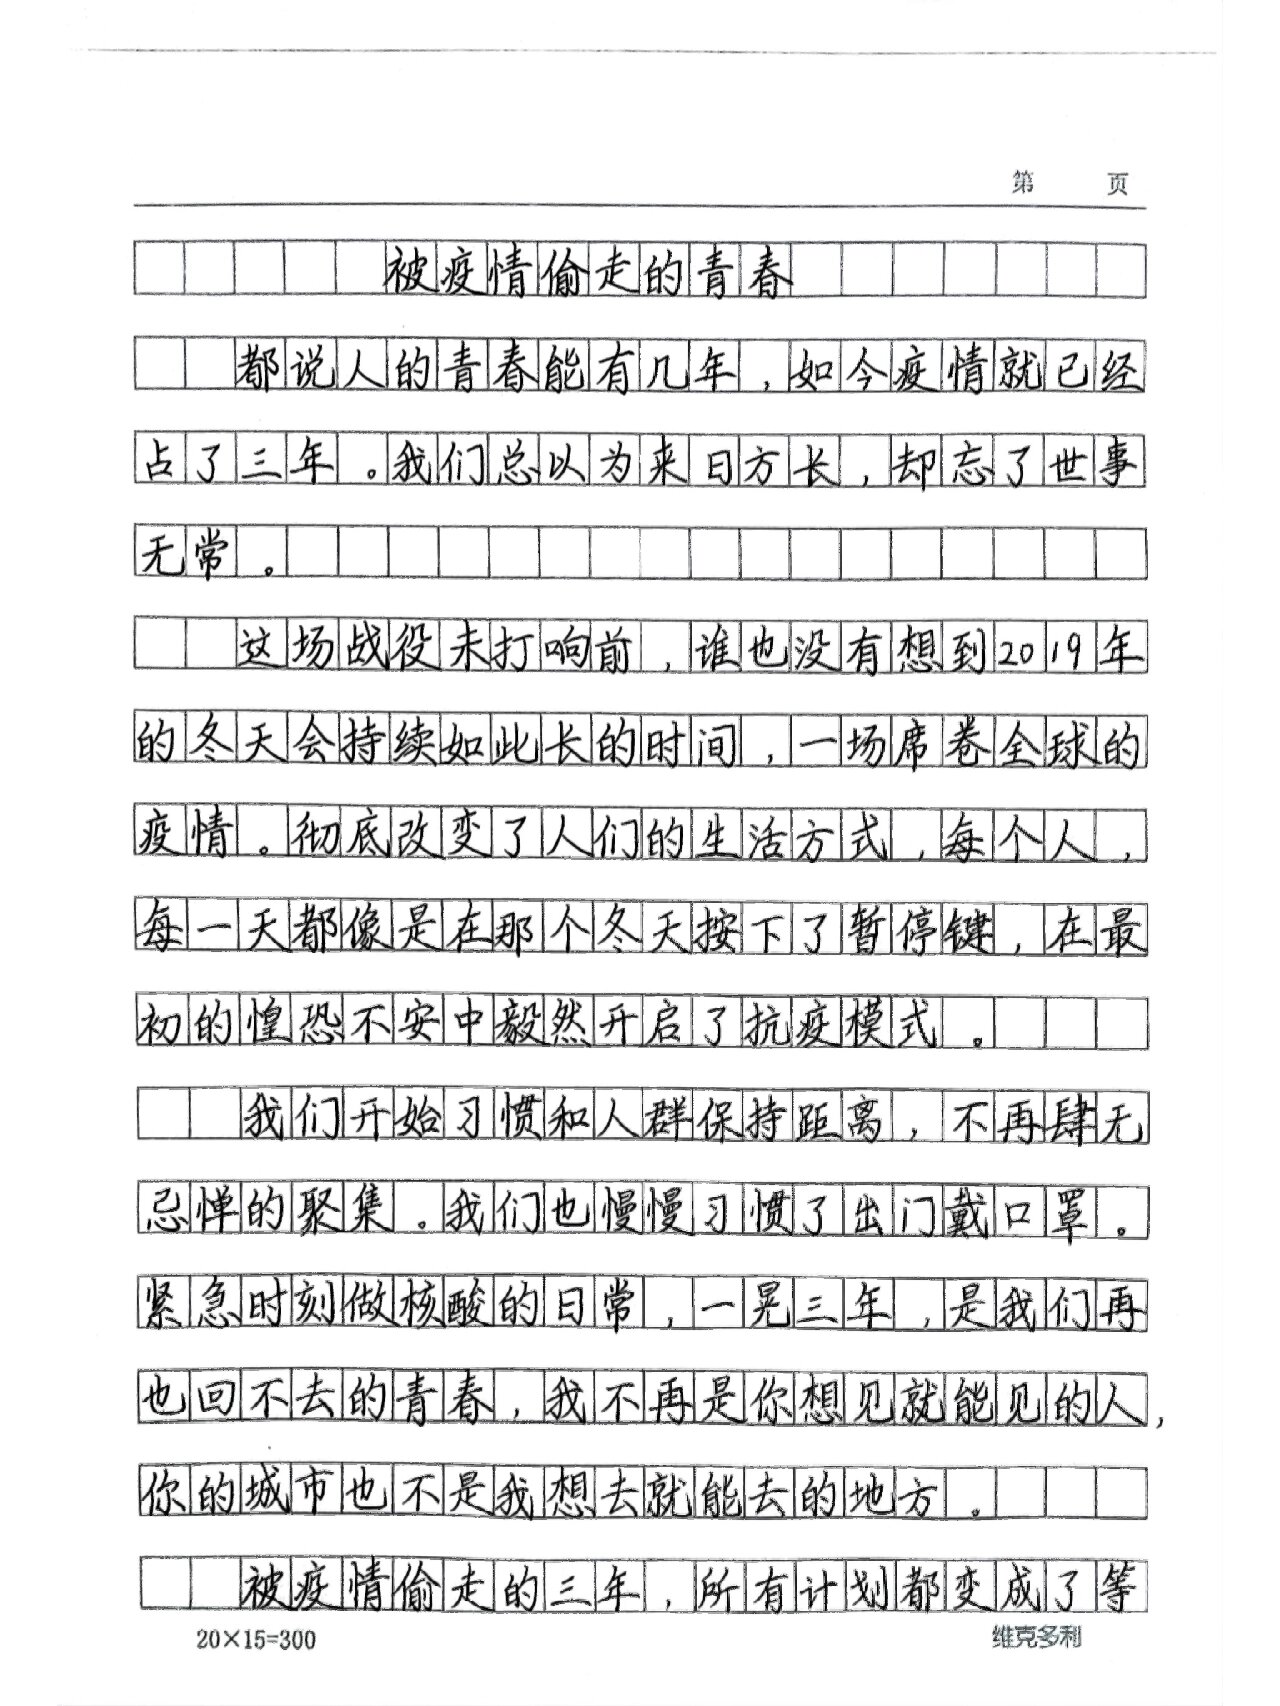 第 页
被疫情偷走的青春
都说人的青春能有几年，如今疫情就已经
占了三年。我们总以为来日方长，却忘了世事
无常。
这场战役未打响前，谁也没有想到2019年
的冬天会持续如此长的时间，一场席卷全球的
疫情。彻底改变了人们的生活方式，每个人，
每一天都像是在那个冬天按下了暂停键，在最
初的惶恐不安中毅然开启了抗疫模式。
我们开始习惯和人群保持距离，不再肆无
忌惮的聚集。我们也慢慢习惯了出门戴口罩。
紧急时刻做核酸的日常，一晃三年，是我们再
也回不去的青春，我不再是你想见就能见的人，
你的城市也不是我想去就能去的地方。
被疫情偷走的三年，所有计划都变成了等
20×15=300 维克多利